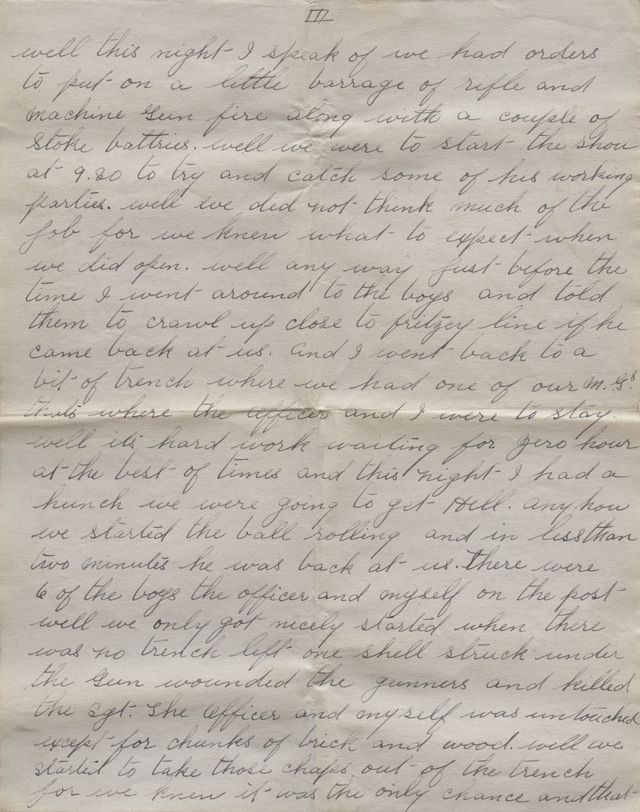 III
well this night I speak of we had orders
to put on a little barrage of rifle and
machine Gun fire along with a couple of
Stoke battries. well we were to start the show
at 9.20 to try and catch some of his working
parties. well we did not think much of the
Job for we knew what to expect when
we did open. well any way Just before the
time I went around to the boys and told
them to crawl up close to fritzey line if he
came back at us. and I went back to a
bit of trench where we had one of our M.G.s
thats where the officer and I were to stay.
well its hard work waiting for zero hour
at the best of times and this night I had a
hunch we were going to get Hell. anyhow
we started the ball rolling and in less than
two minutes he was back at us. There were
6 of the boys the officer and myself on the post
well we only got nicely started when there
was no trench left one shell struck under
the Gun wounded the gunners and killed
the Sgt. The officer and myself was untouched
except for chunks of brick and wood. well we
started to take those chaps out of the trench
for we knew it was the only chance and that